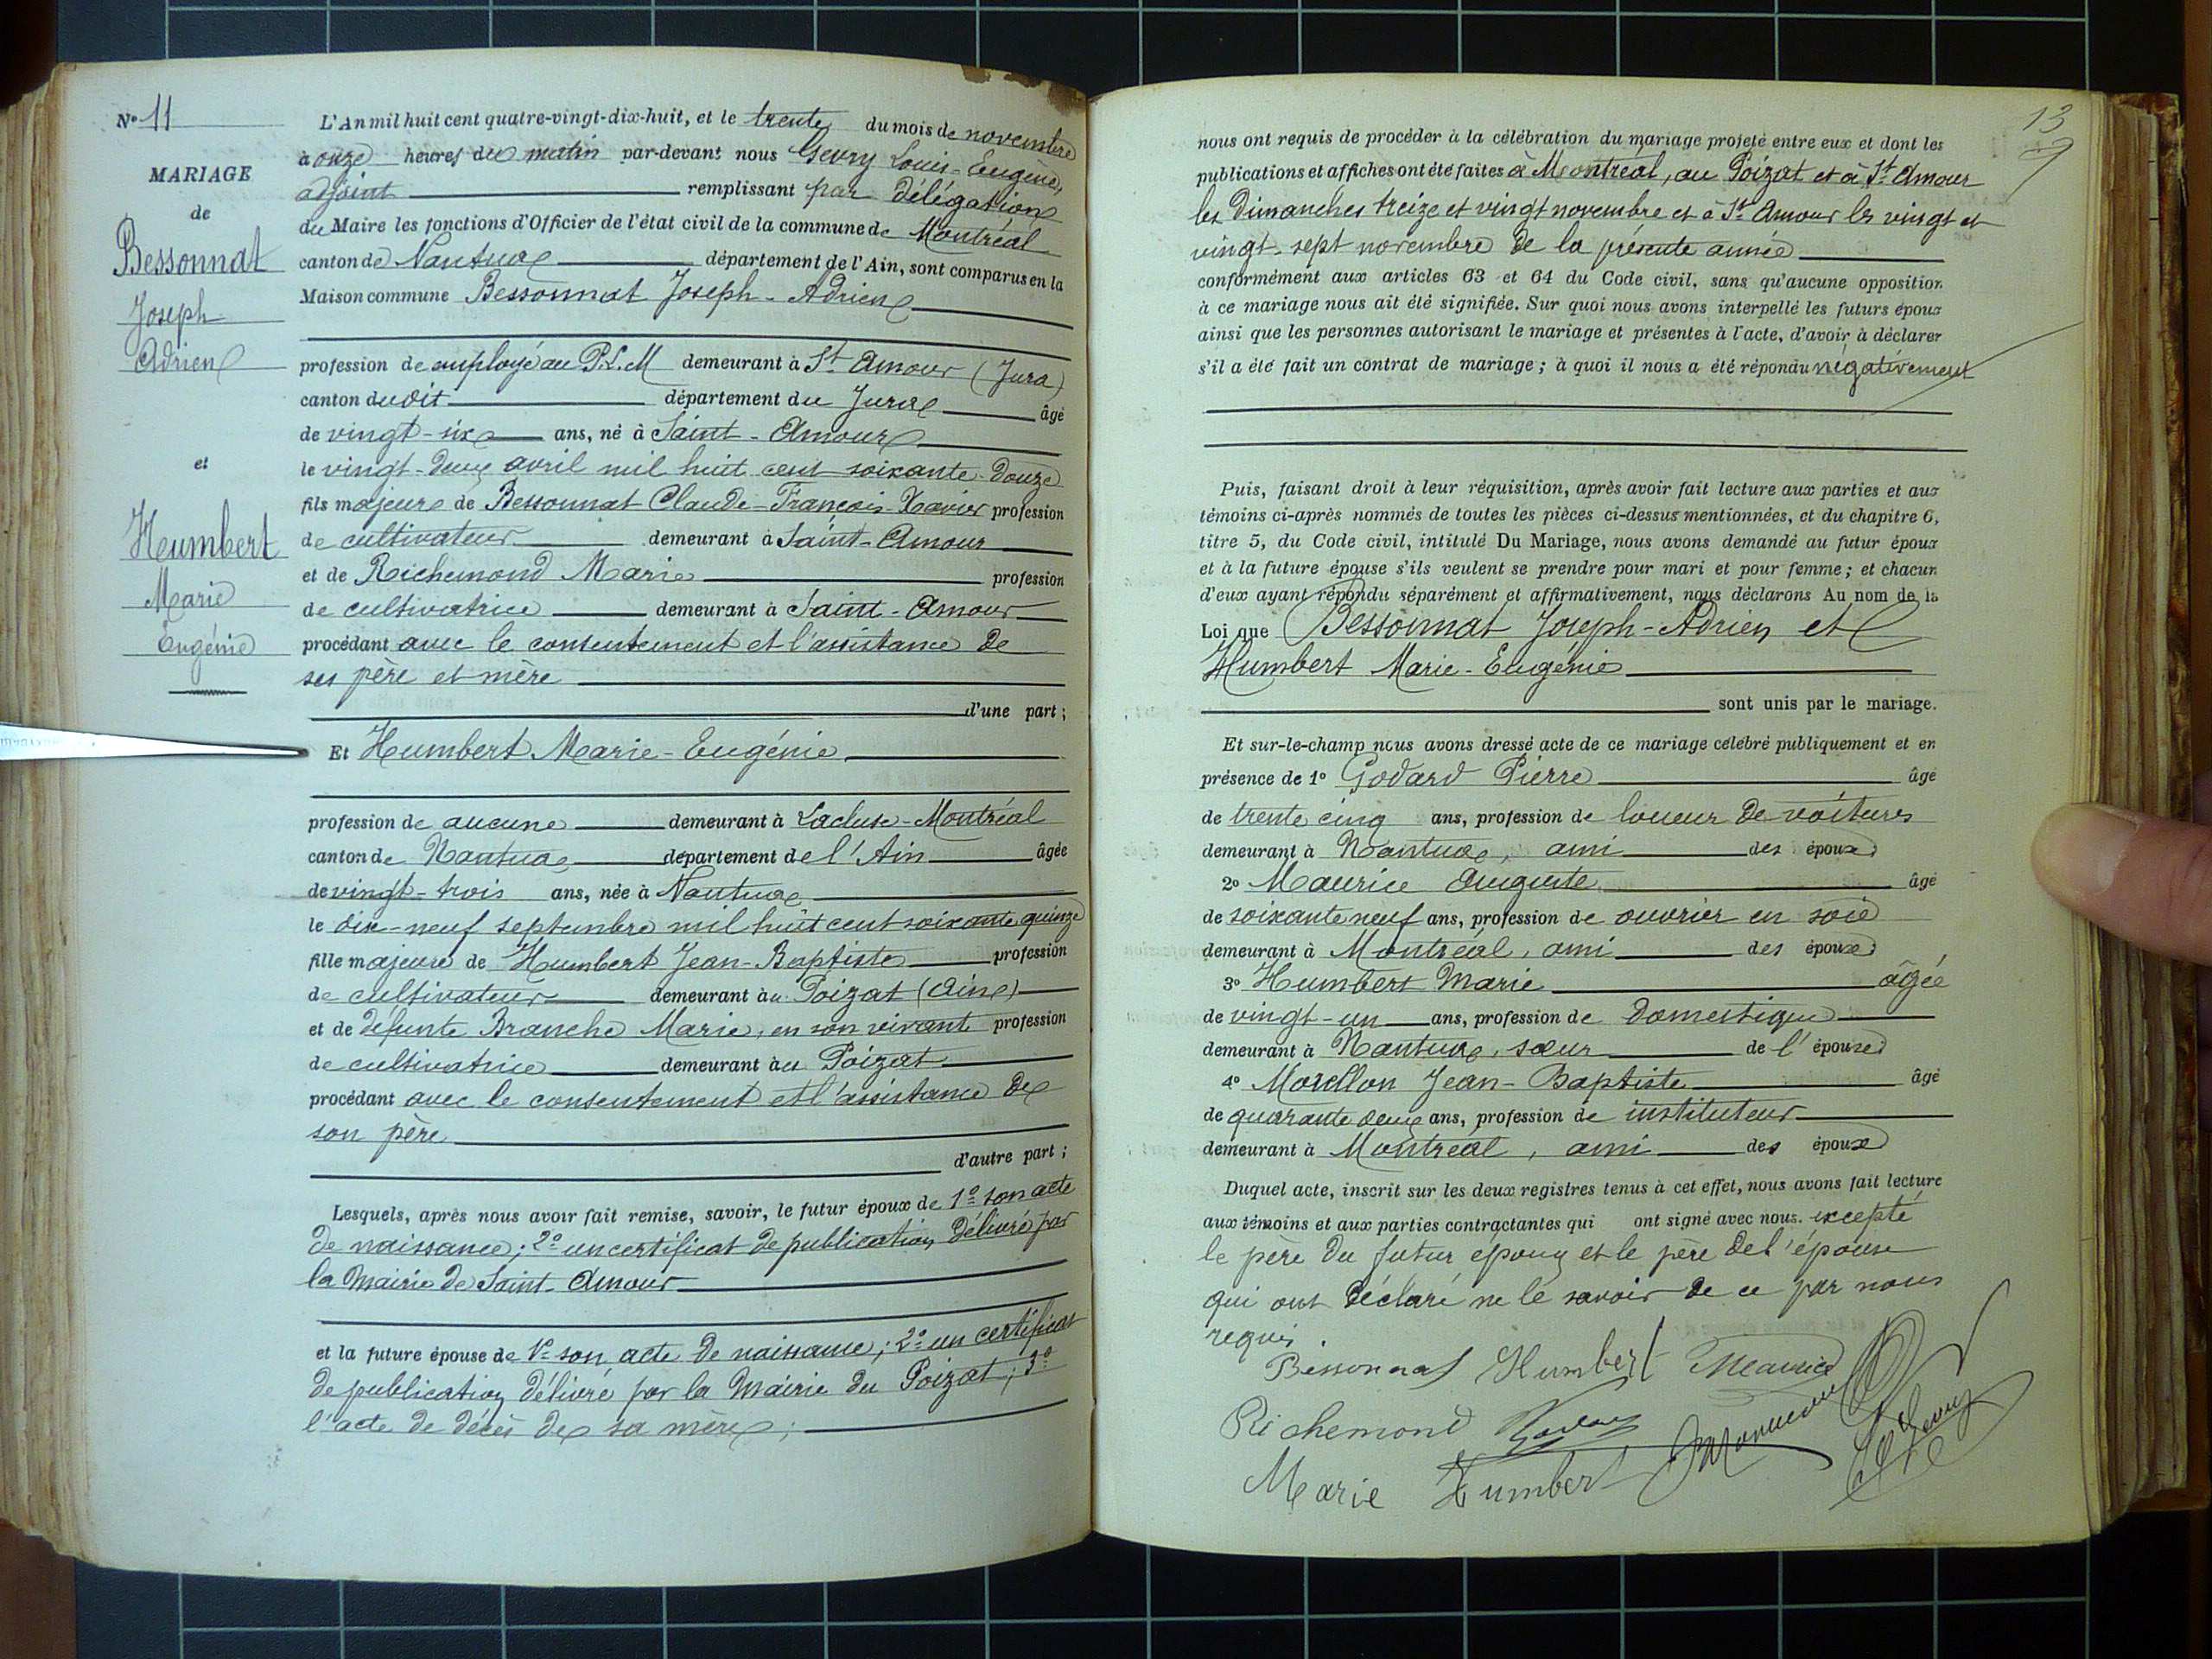 N° 11
MARIAGE
de
Bessonnat
Joseph
Adrien
et
Humbert
Marie
Eugénie
L'An mil huit cent quatre-vingt-dix-huit, et le trente du mois de novembre
à onze heures du matin par-devant nous Gevry Louis-Eugène,
adjoint remplissant par délégation
du Maire les fonctions d'Officier de l'état civil de la commune de Montréal
canton de Nantua département de l'Ain, sont comparus en la
Maison commune Bessonnat Joseph-Adrien
profession de employé au P.L.M demeurant à St Amour (Jura)
canton dudit département du Jura âgé
de vingt-six ans, né à Saint-Amour
le vingt-deux avril mil huit cent soixante-douze
fils majeur de Bessonnat Claude-François-Xavier profession
de cultivateur demeurant à Saint-Amour
et de Richemond Marie profession
de cultivatrice demeurant à Saint-Amour
procédant avec le consentement et l'assistance de
ses père et mère
d'une part;
Et Humbert Marie-Eugénie
profession de aucune demeurant à Lacluse-Montréal
canton de Nantua département de l'Ain âgée
de vingt-trois ans, née à Nantua
le dix-neuf septembre mil huit cent soixante quinze
fille majeure de Humbert Jean-Baptiste profession
de cultivateur demeurant au Poizat (Ain)
et de défunte Branche Marie, en son vivant profession
de cultivatrice demeurant au Poizat
procédant avec le consentement et l'assistance de
son père
d'autre part;
Lesquels, après nous avoir fait remise, savoir, le futur époux de 1° son acte
de naissance; 2° un certificat de publication délivré par
la Mairie de Saint-Amour
et la future épouse de 1° son acte de naissance; 2° un certificat
de publication délivré par la Mairie du Poizat; 3°
l'acte de décès de sa mère;
13
nous ont requis de procéder à la célébration du mariage projeté entre eux et dont les
publications et affiches ont été faites à Montréal, au Poizat et à St Amour
les Dimanches treize et vingt novembre et à St Amour les vingt et
vingt-sept novembre de la présente année
conformément aux articles 63 et 64 du Code civil, sans qu'aucune opposition
à ce mariage nous ait été signifiée. Sur quoi nous avons interpellé les futurs époux
ainsi que les personnes autorisant le mariage et présentes à l'acte, d'avoir à déclarer
s'il a été fait un contrat de mariage; à quoi il nous a été répondu négativement
Puis, faisant droit à leur réquisition, après avoir fait lecture aux parties et aux
témoins ci-après nommés de toutes les pièces ci-dessus mentionnées, et du chapitre 6,
titre 5, du Code civil, intitulé Du Mariage, nous avons demandé au futur époux
et à la future épouse s'ils veulent se prendre pour mari et pour femme; et chacun
d'eux ayant répondu séparément et affirmativement, nous déclarons Au nom de la
Loi que Bessonnat Joseph-Adrien et
Humbert Marie-Eugénie
sont unis par le mariage.
Et sur-le-champ nous avons dressé acte de ce mariage célébré publiquement et en
présence de 1° Godard Pierre âgé
de trente cinq ans, profession de loueur de voitures
demeurant à Nantua, ami des époux
2° Maurice Auguste âgé
de soixante neuf ans, profession de ouvrier en soie
demeurant à Montréal, ami des époux
3° Humbert Marie âgée
de vingt-un ans, profession de domestique
demeurant à Nantua, sœur de l'épouse
4° Morellon Jean-Baptiste âgé
de quarante deux ans, profession de instituteur
demeurant à Montréal, ami des époux
Duquel acte, inscrit sur les deux registres tenus à cet effet, nous avons fait lecture
aux témoins et aux parties contractantes qui ont signé avec nous. excepté
le père du futur époux et le père de l'épouse
qui ont déclaré ne le savoir de ce par nous
requis.
Bessonnat Humbert Maurice
Richemond
Marie Humbert